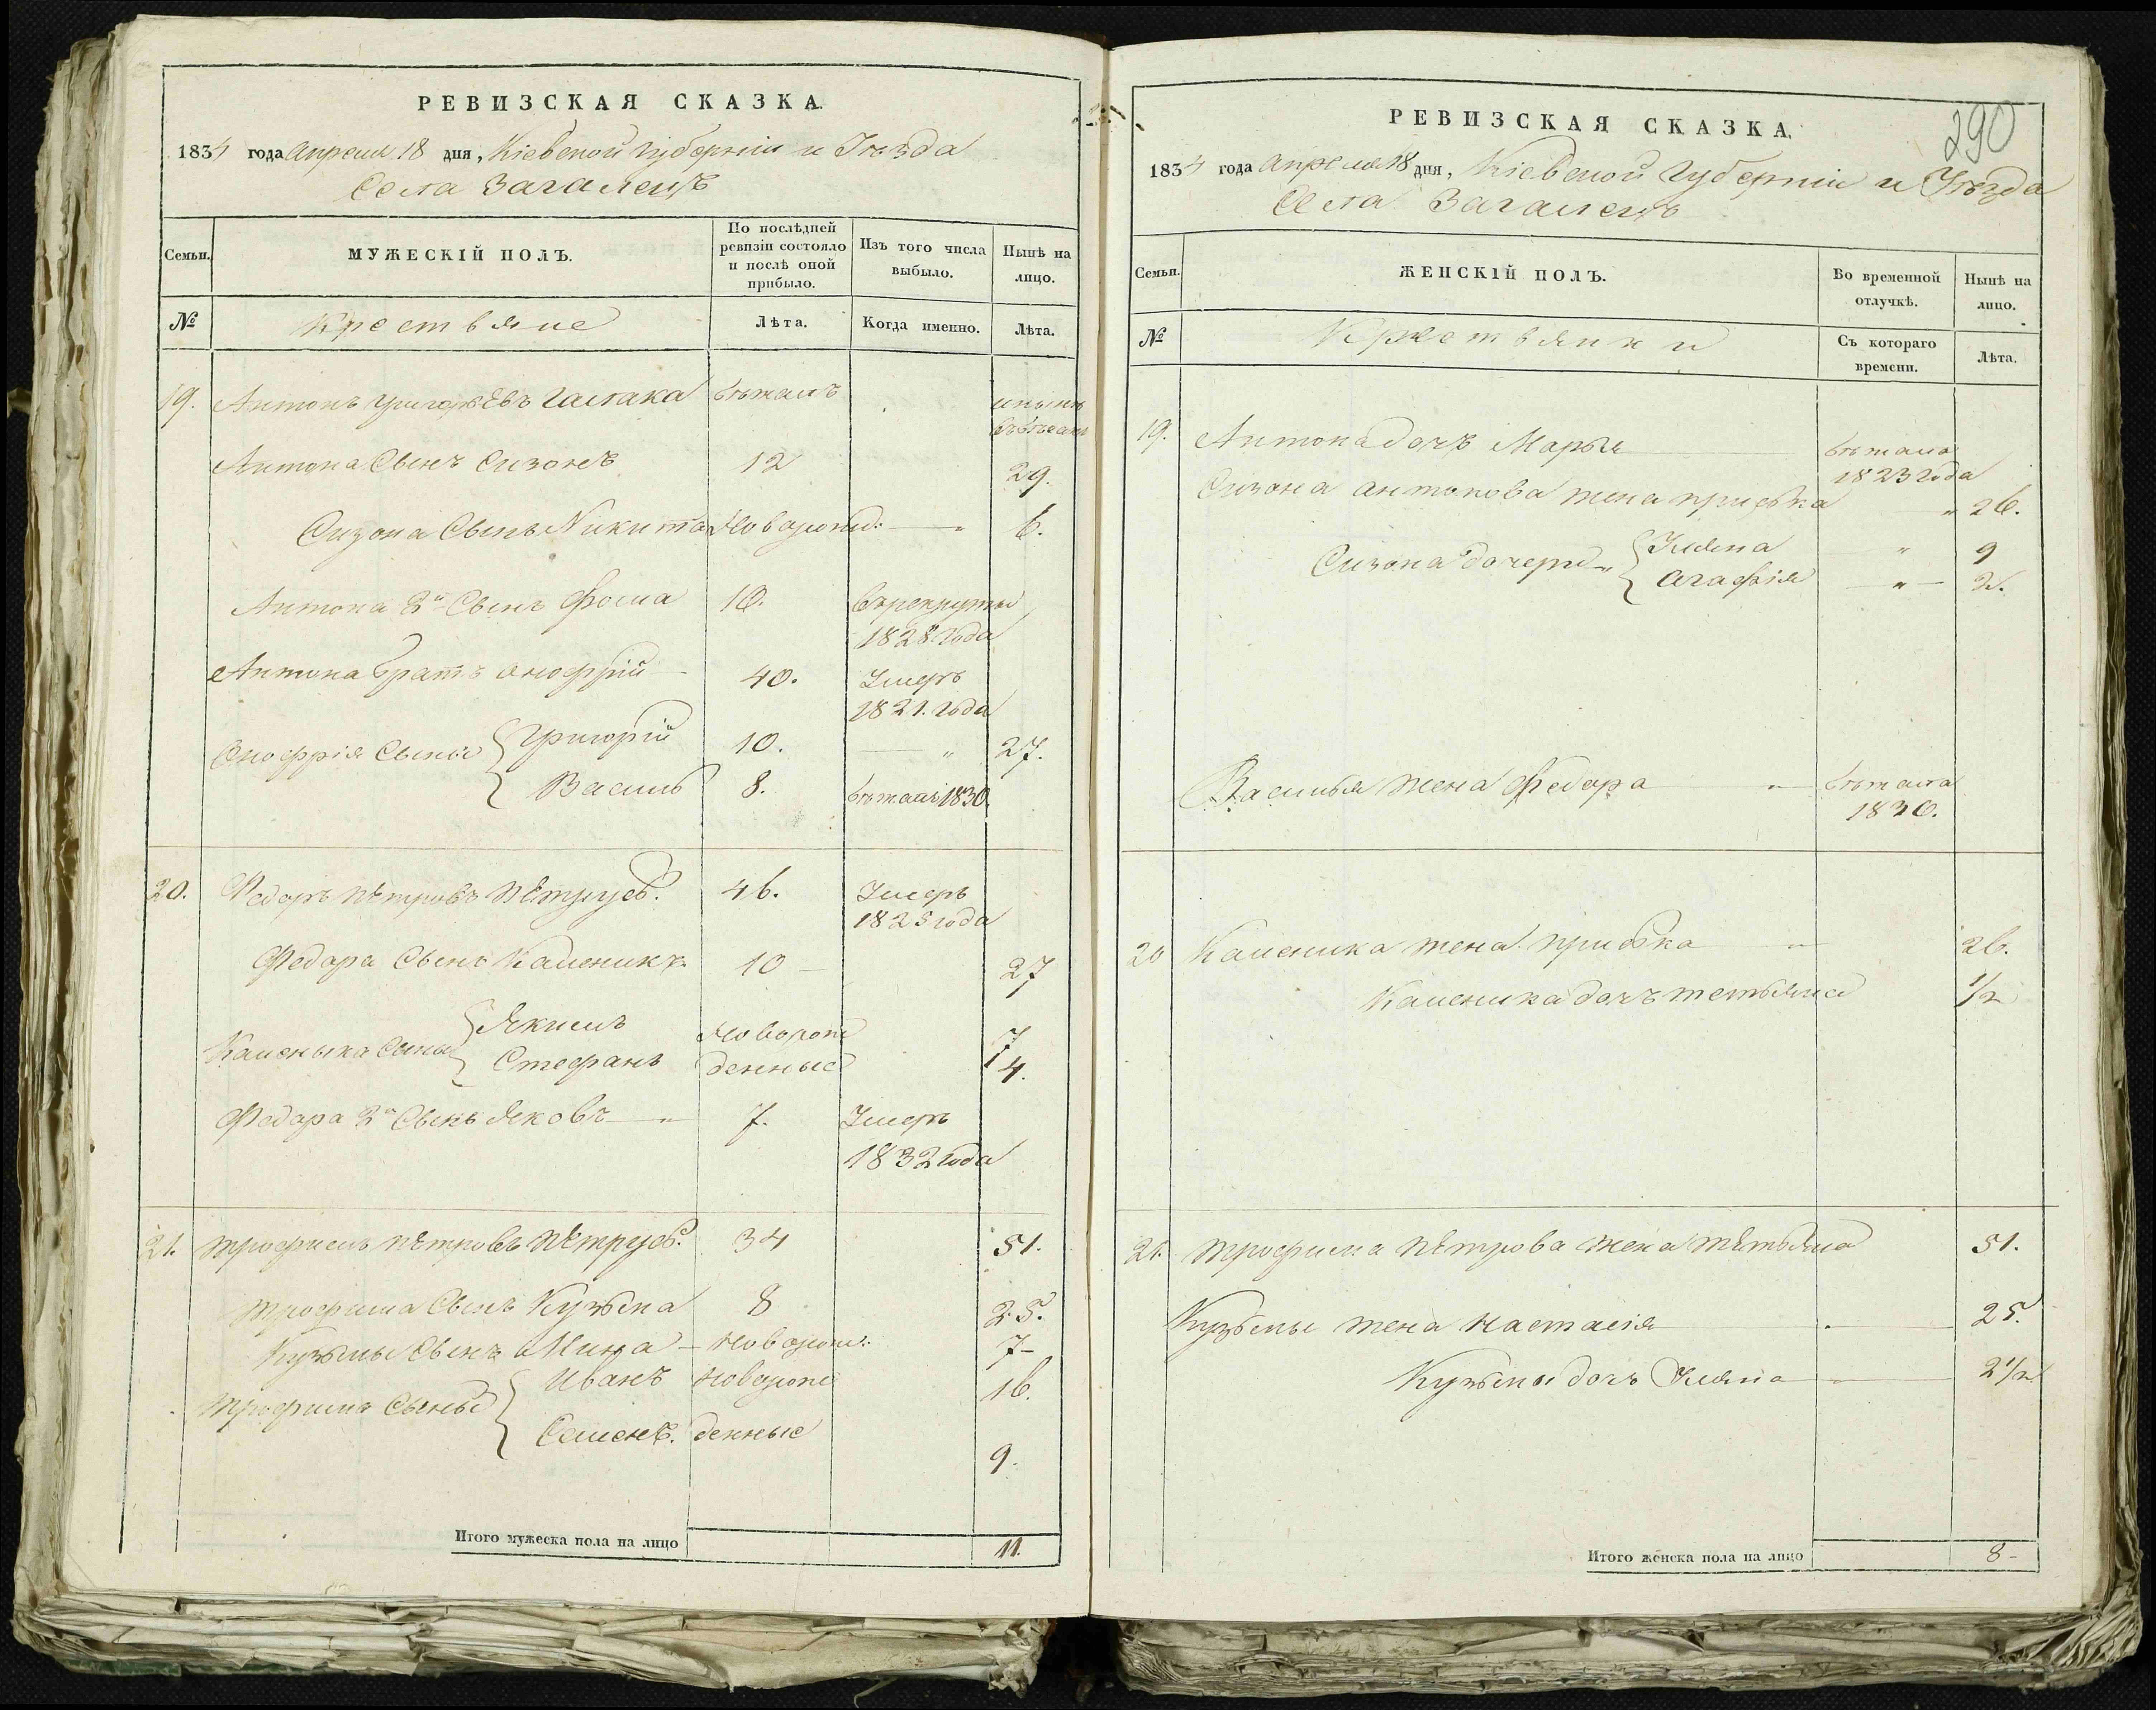 РЕВИЗСКАЯ СКАЗКА.
1834 года апреля 18 дня, Кіевской губерніи и Уѣзда
Села Загалецъ
Семьи.
МУЖЕСКІЙ ПОЛЪ.
По послѣдней ревизіи состояло и послѣ оной прибыло.
Изъ того числа выбыло.
Нынѣ на лицо.
№
Крестьяне
Лѣта.
Когда именно.
Лѣта.
19. Антонъ григорьевъ галака бѣжалъ
Антона Сынъ Сизонъ 12 29.
Сизона Сынъ Никита Новорожд: — „ 6.
Антона 2й Сынъ Фома 10. Врекруты
1828 года
Антона братъ онофрій — 40. Умеръ
1821. года
Онофрія Сыны Григорій 10. — „ 27.
Василь 8. бѣжалъ 1830.
20. Федоръ петровъ 46. Умеръ
1825 года
Федора Сынъ Каленикъ 10 — 27
Каленика Сыны Якимъ Новорож 7
Стефанъ денные 4.
Федора 2й Сынъ Яковъ — „ 7. Умеръ
1832 года
21. трофимъ петровъ 34 51.
трофима Сынъ Кузьма 8 25.
Кузьмы Сынъ Мина — новорож: 7 –
трофима Сыны Иванъ новорож 16.
Семенъ. денные
9.
Итого мужеска пола на лицо 11.
290
РЕВИЗСКАЯ СКАЗКА.
1834 года апреля 18 дня, Кіевской губерніи и Уѣзда
Села Загалецъ
Семьи.
ЖЕНСКІЙ ПОЛЪ.
Во временной отлучкѣ.
Нынѣ на лицо.
№
Крестьянки
Съ котораго времени.
Лѣта.
19. Антона дочь Марья бѣжала
1823 года
Сизона антонова жена приська „ 26.
Сизона дочери Уляна „ 9
Агафія — „ — 2.
Василья жена Федора „ бѣжала
1830.
20 Каленика жена приська „ 26.
Каленика дочь тетьяна 1/2
21. трофима петрова жена тетьяна 51.
Кузьмы жена настасія 25.
Кузьмы дочь Уляна „ 2 1/2
Итого женска пола на лицо 8 –